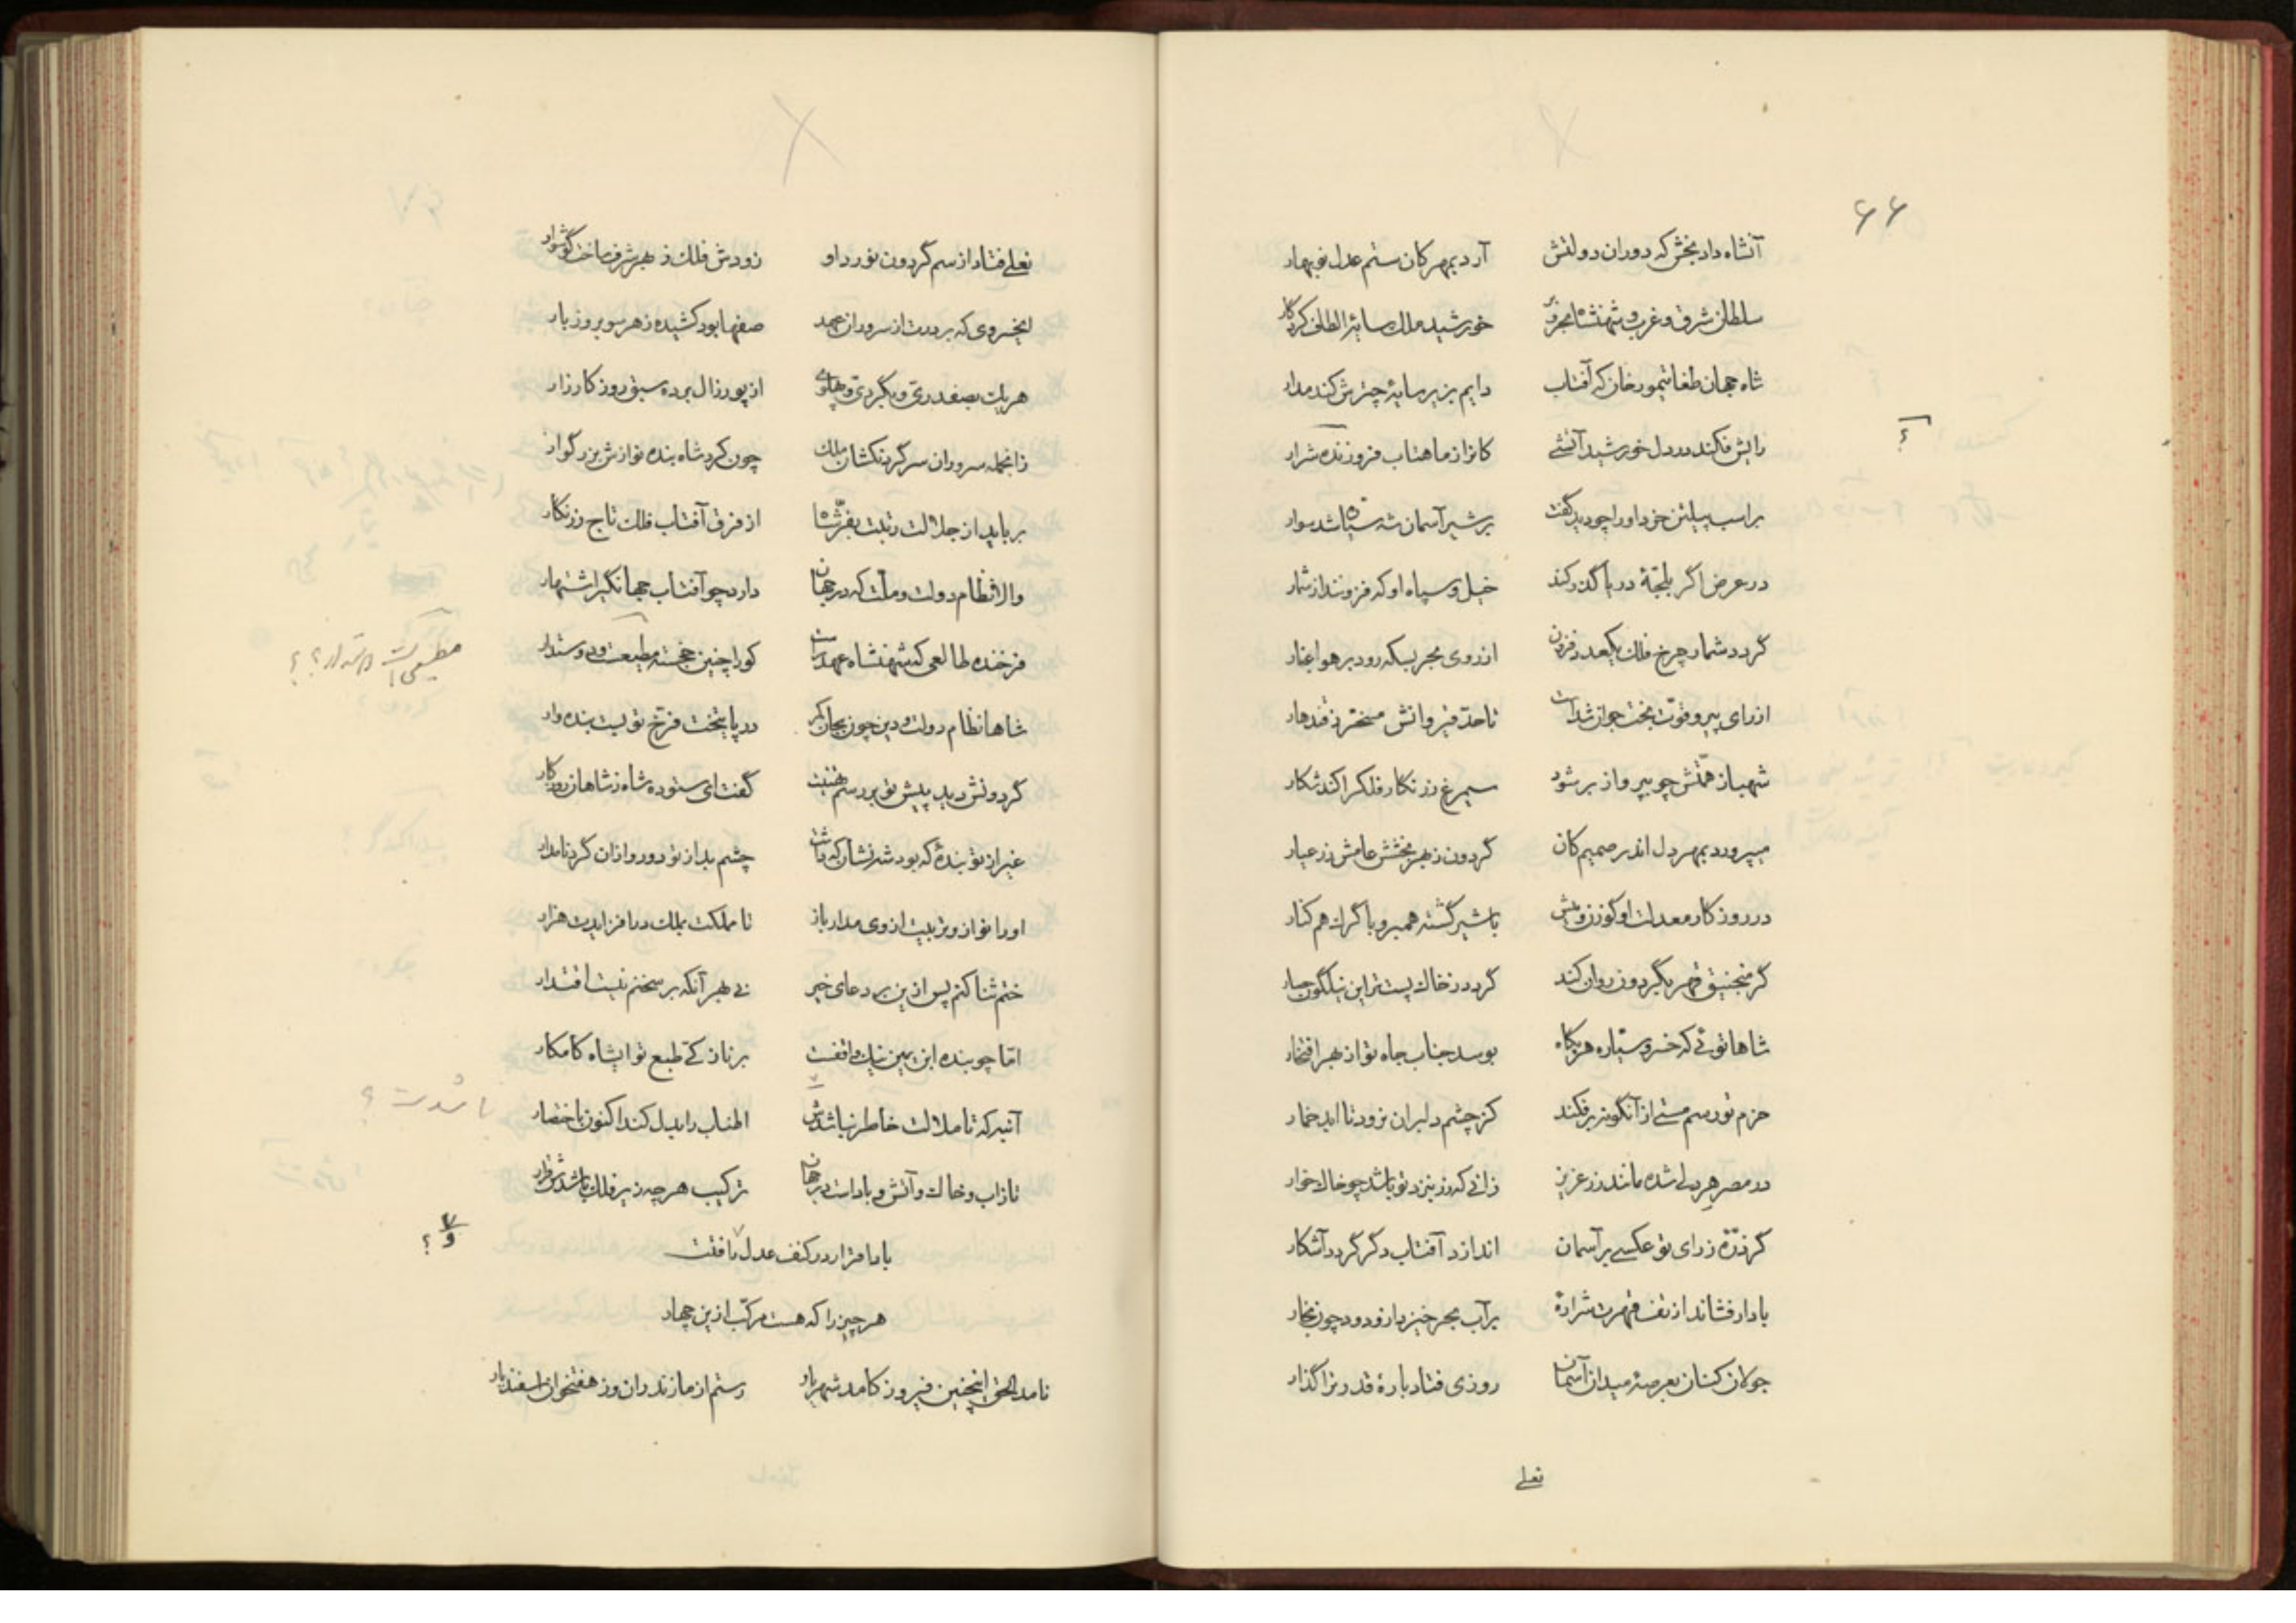 ۶۶
آنشاه دادبخش که دوران دولتش آرد بمهرکان ستم عدل نوبهار
سلطان شرق و غرب و شهنشاه بحر و بر خورشید ملک سایه الطاف کردکار
شاه جهان طغایتمور خان که آفتاب دایم بزیر سایه چترش کند مدار
رایش فکند در دل خورشید آتشی کانرا ز ماهتاب فروزنده شرار
بر اسب پیلتن خرد او را چو دید گفت بر شیر آسمان شه سیاره شد سوار
در عرض اگر بلجّهٔ دریا گذر کند خیل و سپاه او که فزونند از شمار
گردد شمار چرخ فلک یکعدد فزون از روی بحر بسکه رود بر هوا غبار
از رای پیر و قوّت بخت جوان شداست تا حدّ قیروانش مسخّر ز قندهار
شهباز همّتش چو بپرواز بر شود سیمرغ زرنکار فلکرا کند شکار
میپرورد بمهر دل اندر صمیم کان گردون ز بهر بخشش عامش زر عیار
در روزکار معدلت او کوزن و میش با شیر گشته همبر و با گرک هم کنار
گر منجنیق قهر بگردون روان کند گردد ز خاک پست تر این نیلگون حصار
شاها توئی که خسرو سیّاره هر پگاه بوسد جناب جاه تو از بهر افتخار
حزم تو رسم مستی از آنگونه بر فکند کز چشم دلبران برود تا ابد خمار
در مصر هر دلی شده مانند زر عزیز زانی که زر بنزد تو باشد چو خاک خوار
گر ذرّهٔ ز رای تو عکسی بر آسمان اندازد آفتاب دگر گردد آشکار
باد ار فشاند از تف قهرت شرارهٔ بر آب بحر خیزد ازو دود چون بخار
جولان کنان بعرصهٔ میدان آسمان روزی فتاد بارهٔ قدر ترا گذار
نعلی
نعلی فتاد از سم گردون نورد او زودش فلک ز بهر شرف ساخت گوشوار
ایخسروی که بر درت از سروران عهد صفها بود کشیده ز هر سو بروز بار
هر یک بصفدری و بگردی و پهلوی از پور زال برده سبق روز کارزار
زانجمله سروران سر گردنکشان ملک چون کرد شاه بنده نوازش بزرگوار
برباید از جلالت رتبت بفرّ شاه از فرق آفتاب فلک تاج زرنکار
والا نظام دولت و ملّت که در جهان دارد چو آفتاب جهانگیر اشتهار
فرخنده طالعی که شهنشاه عهد راست کورا چنین خجسته مطیعست و دوستدار
شاها نظام دولت و دین چون بجان کمر در پایتخت فرّخ تو بست بنده وار
گردونش دید پیش تو بر رسم تهنیت گفت ای ستوده شاه ز شاهان روزکار
غیر از تو بندهٔ که بود شه نشان که داشت چشم بد از تو دور و ازان گرد نامدار
او را نواز و تربیت از وی مدار باز تا مملکت بملک در افزایدت هزار
ختم ثنا کنم پس ازین بر دعای خیر نی بهر آنکه بر سخنم نیست اقتدار
امّا چو بنده ابن یمین نیک واقفست بر نازکی طبع تو ایشاه کامکار
آنبه که تا ملالت خاطر نباشدش اطناب را بدل کند اکنون باختصار
تا ز آب و خاک و آتش و باد است در جهان ترکیب هر چه زیر فلک باشدش قرار
بادا قرار در کنف عدل تا فتت
هر چیز را که هست مرکّب ازین چهار
نامد الحق اینچنین فیروز کامد شهریار رستم از مازندران وز هفتخوان اسفندیار
باشدت ؟